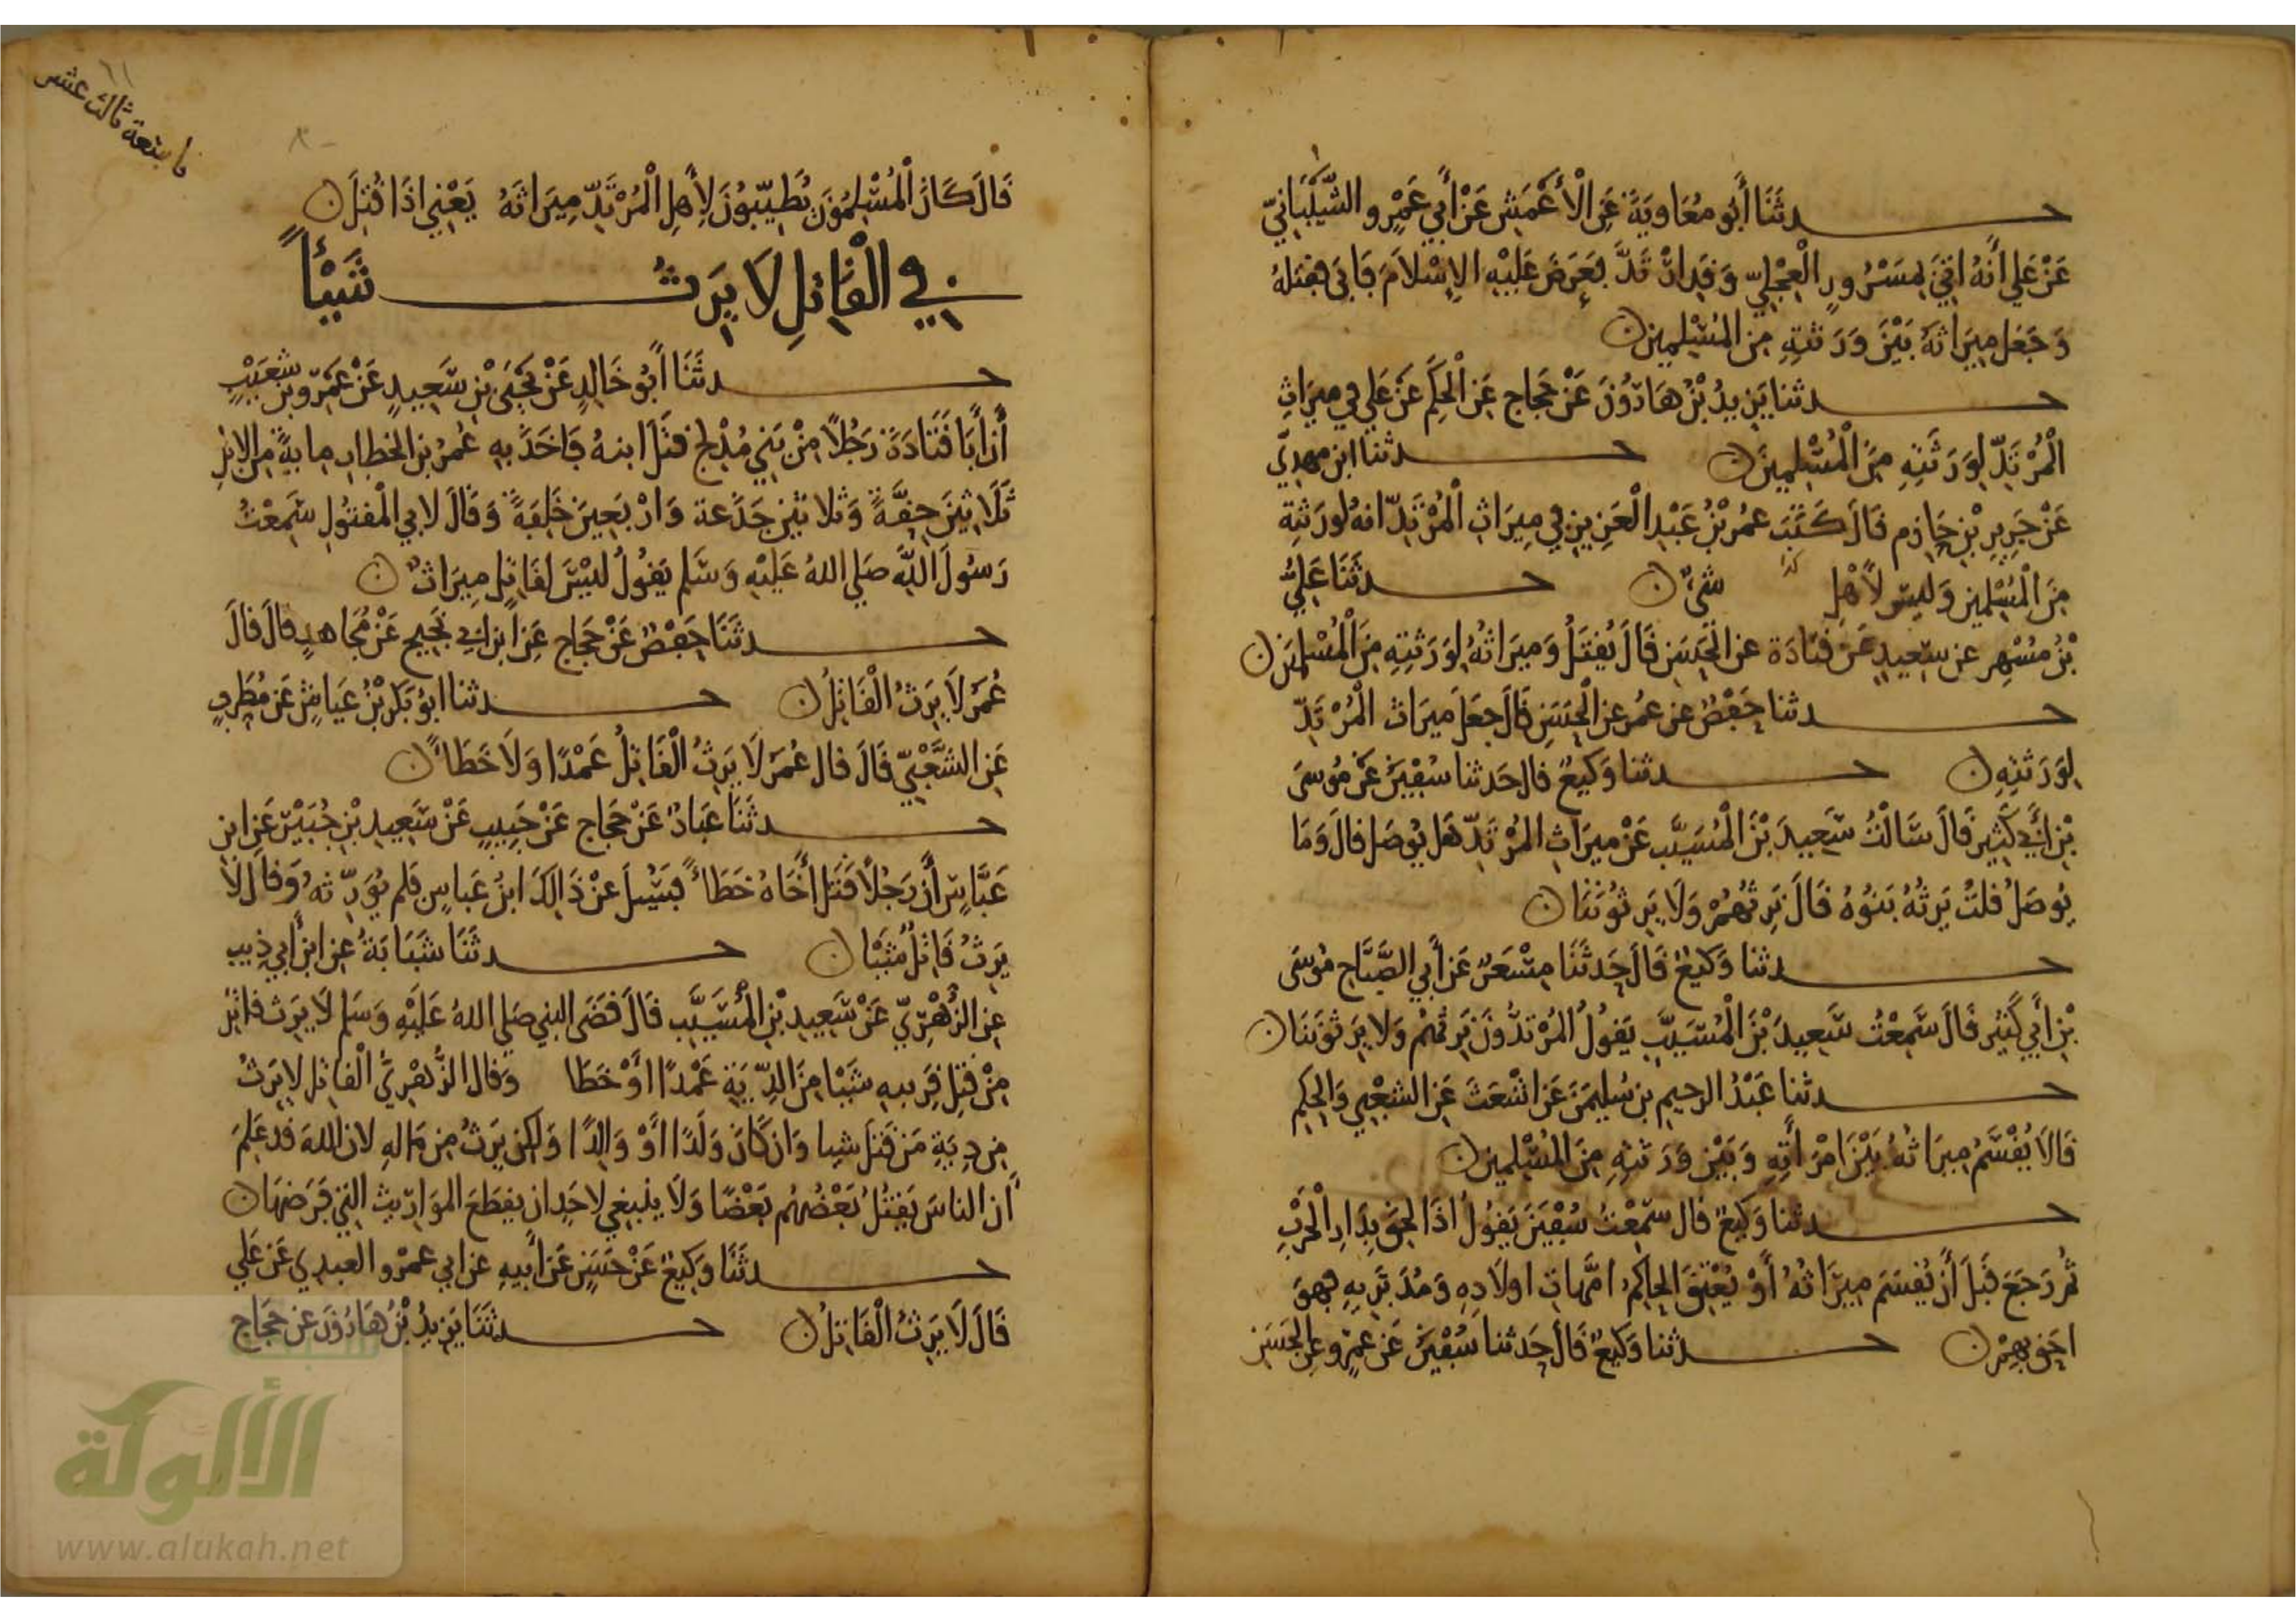 حدثنا أبو معاوية عن الأعمش عن أبي عمرو الشيباني
عن علي أنه اتي بمستورد العجلي وقد ارتد فعرض عليه الإسلام فابى فقتله
وجعل ميراثه بين ورثته من المسلمين
حدثنا يزيد بن هارون عن حجاج عن الحكم عن علي في ميراث
المرتد لورثته من المسلمين حدثنا ابن مهدي
عن جرير بن حازم قال كتب عمر بن عبد العزيز في ميراث المرتد انه لورثته
من المسلمين وليس لأهل شيء حدثنا علي
بن مسهر عن سعيد عن قتادة عن الحسن قال يقتل وميراثه لورثته من المسلمين
حدثنا حفص عن عمر عن الحسن قال جعل ميراث المرتد
لورثته حدثنا وكيع قال حدثنا سفين عن موسى
بن أبي كثير قال سالت سعيد بن المسيب عن ميراث المرتد هل يوصل قال وما
يوصل قلت يرثه بنوه قال نرثهم ولا يرثوننا
حدثنا وكيع قال حدثنا مسعر عن أبي الصباح موسى
بن أبي كثير قال سمعت سعيد بن المسيب يقول المرتدون نرثهم ولا يرثوننا
حدثنا عبد الرحيم بن سليمن عن اشعث عن الشعبي والحكم
قالا يقسم ميراثه بين امرأته وبين ورثته من المسلمين
حدثنا وكيع قال سمعت سفين يقول اذا لحق بدار الحرب
ثم رجع قبل أن يقسم ميراثه أو يعتق الحاكم امهات اولاده ومدبريه فهو
احق بهم حدثنا وكيع قال حدثنا سفين عن عمرو عن الحسن
ثالث عشر
قال كان المسلمون يطيبون لأهل المرتد ميراثه يعني اذا قتل
في القاتل لا يرث شيئا
حدثنا أبو خالد عن يحيى بن سعيد عن عمرو بن شعيب
أن أبا قتادة رجلا من بني مدلج قتل ابنه فاخذ به عمر بن الخطاب ماية من الابل
ثلاثين حقة وثلاثين جذعة واربعين خلفة وقال لابي المقتول سمعت
رسول الله صلى الله عليه وسلم يقول ليس لقاتل ميراث
حدثنا حفص عن حجاج عن ابن ابي نجيح عن مجاهد قال قال
عمر لا يرث القاتل حدثنا ابو بكر بن عياش عن مطرف
عن الشعبي قال قال عمر لا يرث القاتل عمدا ولا خطأ
حدثنا عباد عن حجاج عن حبيب عن سعيد بن جبير عن ابن
عباس أن رجلا قتل أخاه خطأ فسئل عن ذلك ابن عباس فلم يورثه وقال لا
يرث قاتل شيئا حدثنا شبابة عن ابن أبي ذيب
عن الزهري عن سعيد بن المسيب قال قضى النبي صلى الله عليه وسلم لا يرث قاتل
من قتل قريبه شيئا من الدية عمدا أو خطا وقال الزهري القاتل لا يرث
من دية من قتل شيا وان كان ولدا أو والدا ولكن يرث من ماله لان الله قد علم
أن الناس يقتل بعضهم بعضا ولا ينبغي لاحد ان يقطع المواريث التي فرضها
حدثنا وكيع عن حسن عن أبيه عن ابي عمرو العبدي عن علي
قال لا يرث القاتل حدثنا يزيد بن هارون عن حجاج
شبكة
الألوكة
www.alukah.net